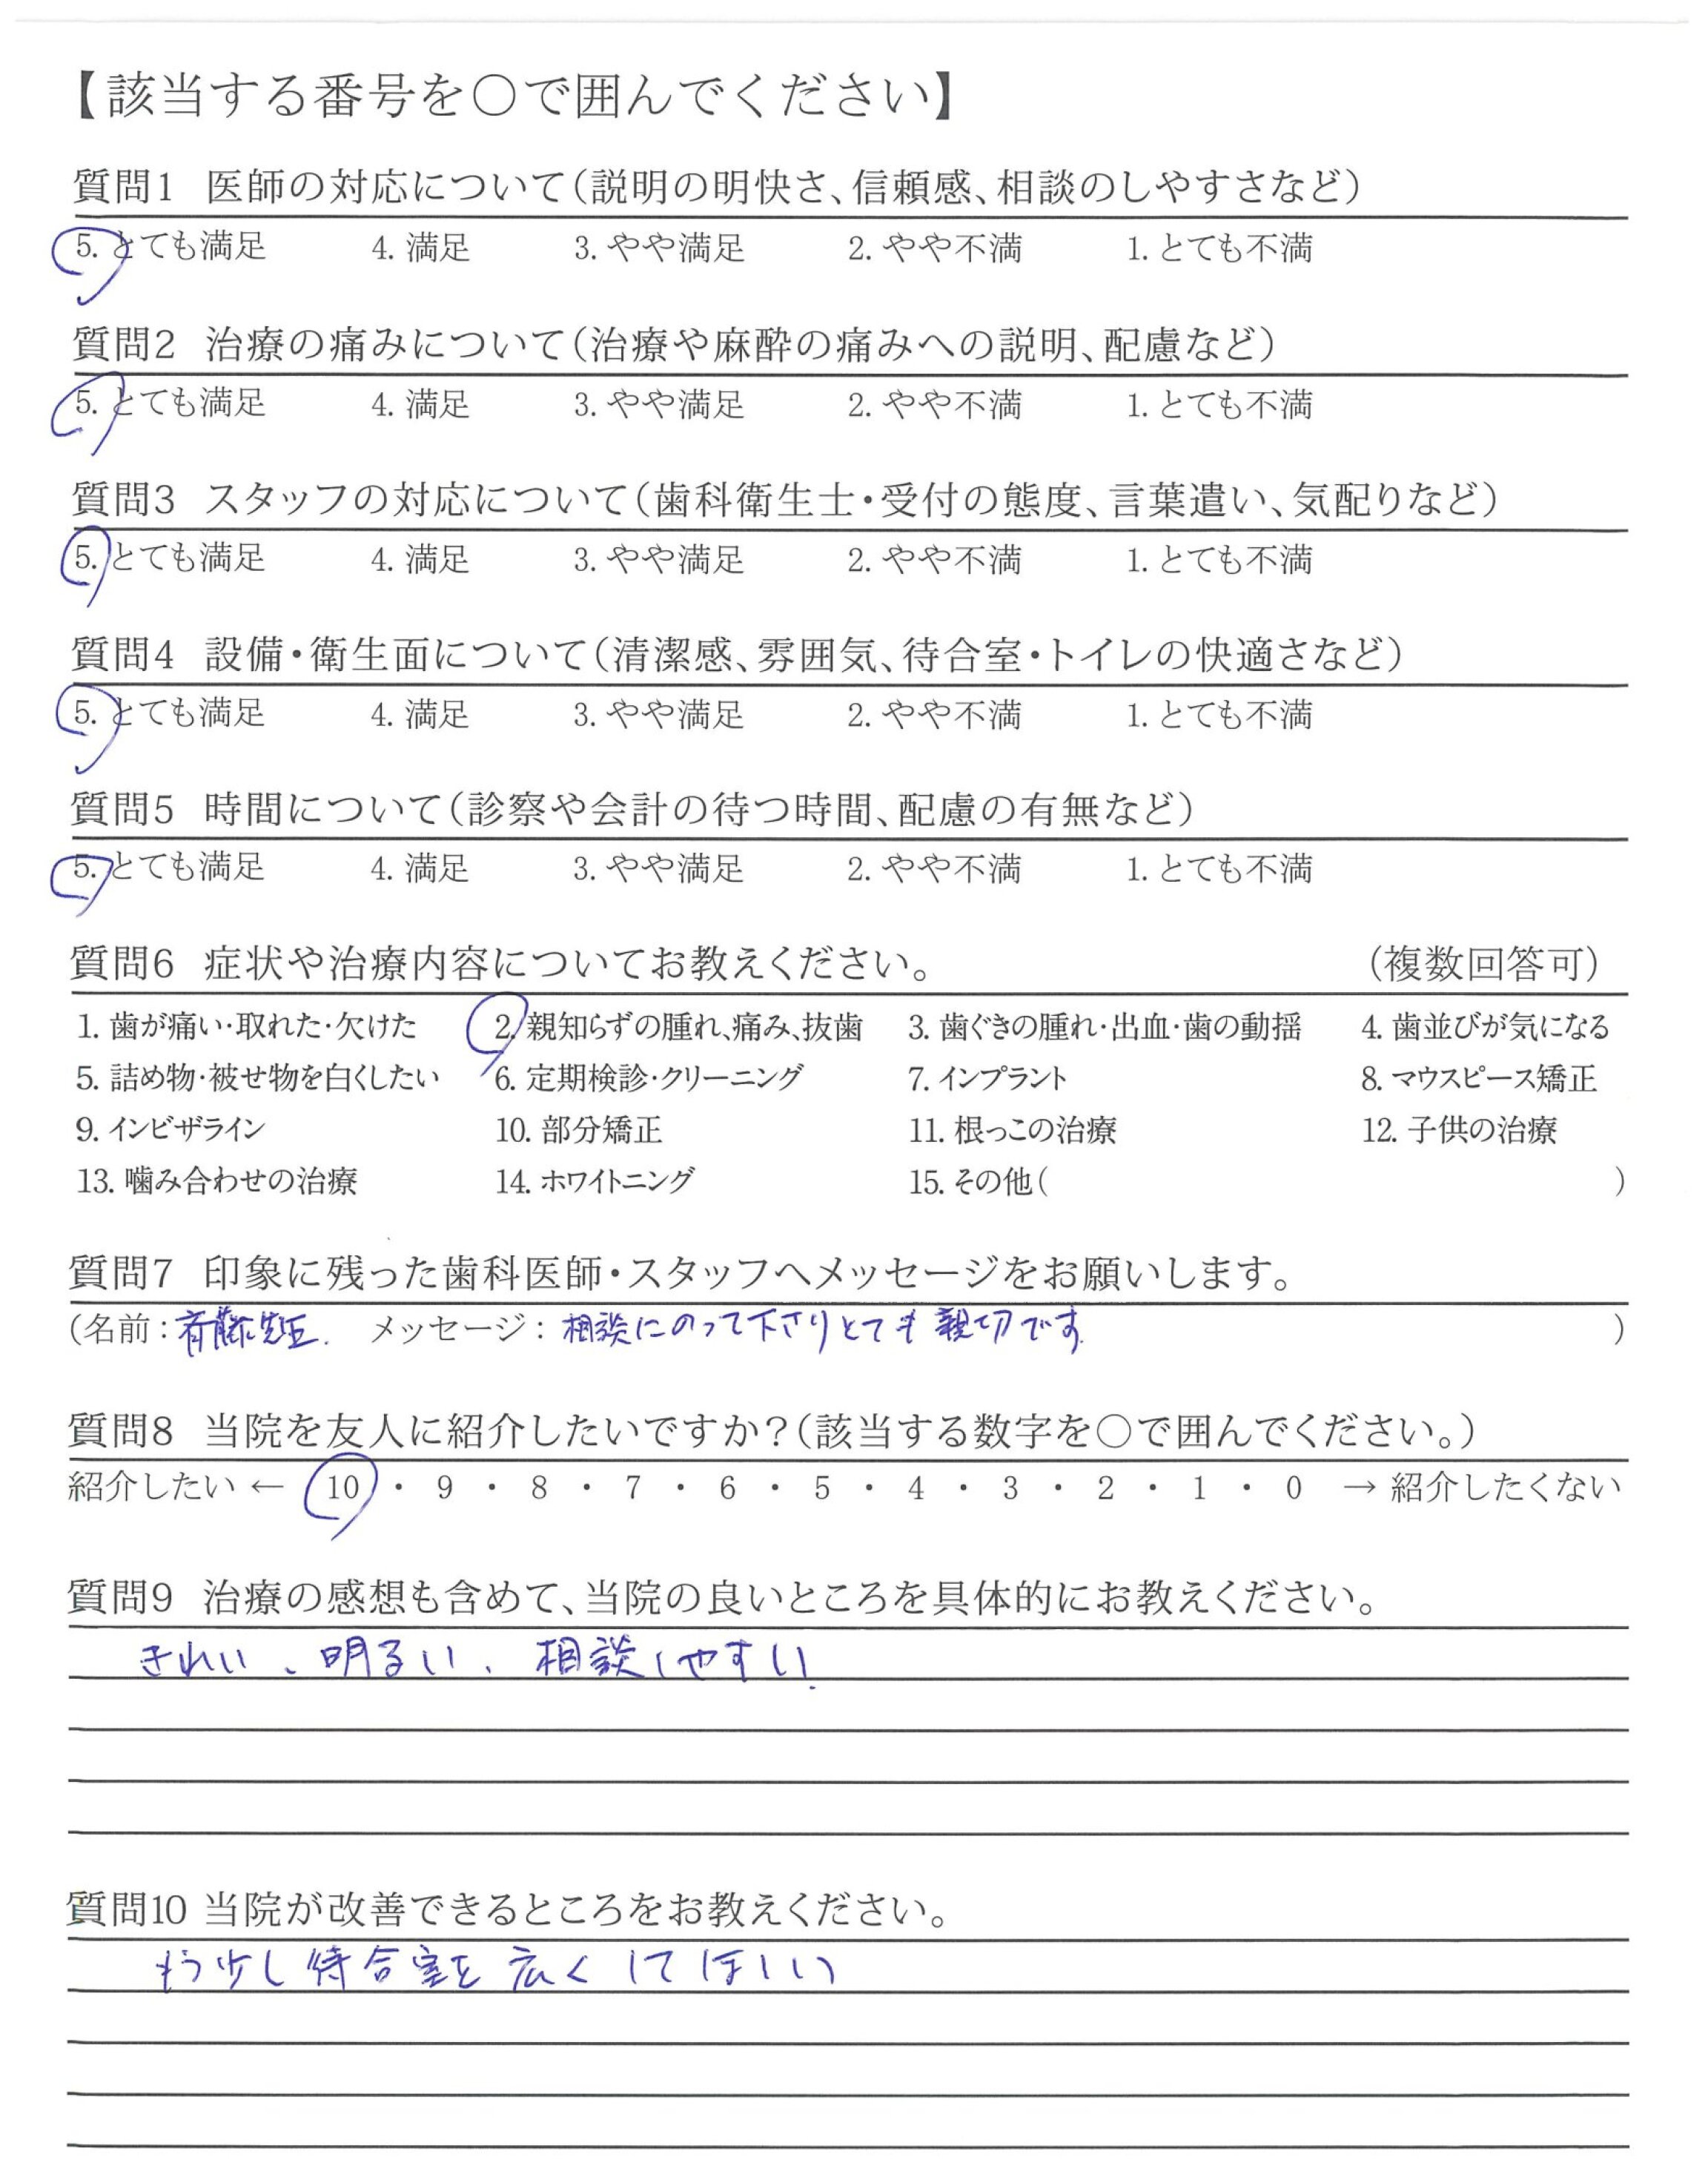 【該当する番号を○で囲んでください】
質問1 医師の対応について(説明の明快さ、信頼感、相談のしやすさなど)
5. とても満足 4. 満足 3. やや満足 2. やや不満 1. とても不満
質問2 治療の痛みについて(治療や麻酔の痛みへの説明、配慮など)
5. とても満足 4. 満足 3. やや満足 2. やや不満 1. とても不満
質問3 スタッフの対応について(歯科衛生士・受付の態度、言葉遣い、気配りなど)
5. とても満足 4. 満足 3. やや満足 2. やや不満 1. とても不満
質問4 設備・衛生面について(清潔感、雰囲気、待合室・トイレの快適さなど)
5. とても満足 4. 満足 3. やや満足 2. やや不満 1. とても不満
質問5 時間について(診察や会計の待つ時間、配慮の有無など)
5. とても満足 4. 満足 3. やや満足 2. やや不満 1. とても不満
質問6 症状や治療内容についてお教えください。 (複数回答可)
1. 歯が痛い・取れた・欠けた 2. 親知らずの腫れ、痛み、抜歯 3. 歯ぐきの腫れ・出血・歯の動揺 4. 歯並びが気になる
5. 詰め物・被せ物を白くしたい 6. 定期検診・クリーニング 7. インプラント 8. マウスピース矯正
9. インビザライン 10. 部分矯正 11. 根っこの治療 12. 子供の治療
13. 噛み合わせの治療 14. ホワイトニング 15. その他( )
質問7 印象に残った歯科医師・スタッフへメッセージをお願いします。
(名前:斉藤先生. メッセージ:相談にのって下さりとても親切です. )
質問8 当院を友人に紹介したいですか?(該当する数字を○で囲んでください。)
紹介したい ← 10 ・ 9 ・ 8 ・ 7 ・ 6 ・ 5 ・ 4 ・ 3 ・ 2 ・ 1 ・ 0 → 紹介したくない
質問9 治療の感想も含めて、当院の良いところを具体的にお教えください。
きれい、明るい、相談しやすい.
質問10 当院が改善できるところをお教えください。
もう少し待合室を広くしてほしい